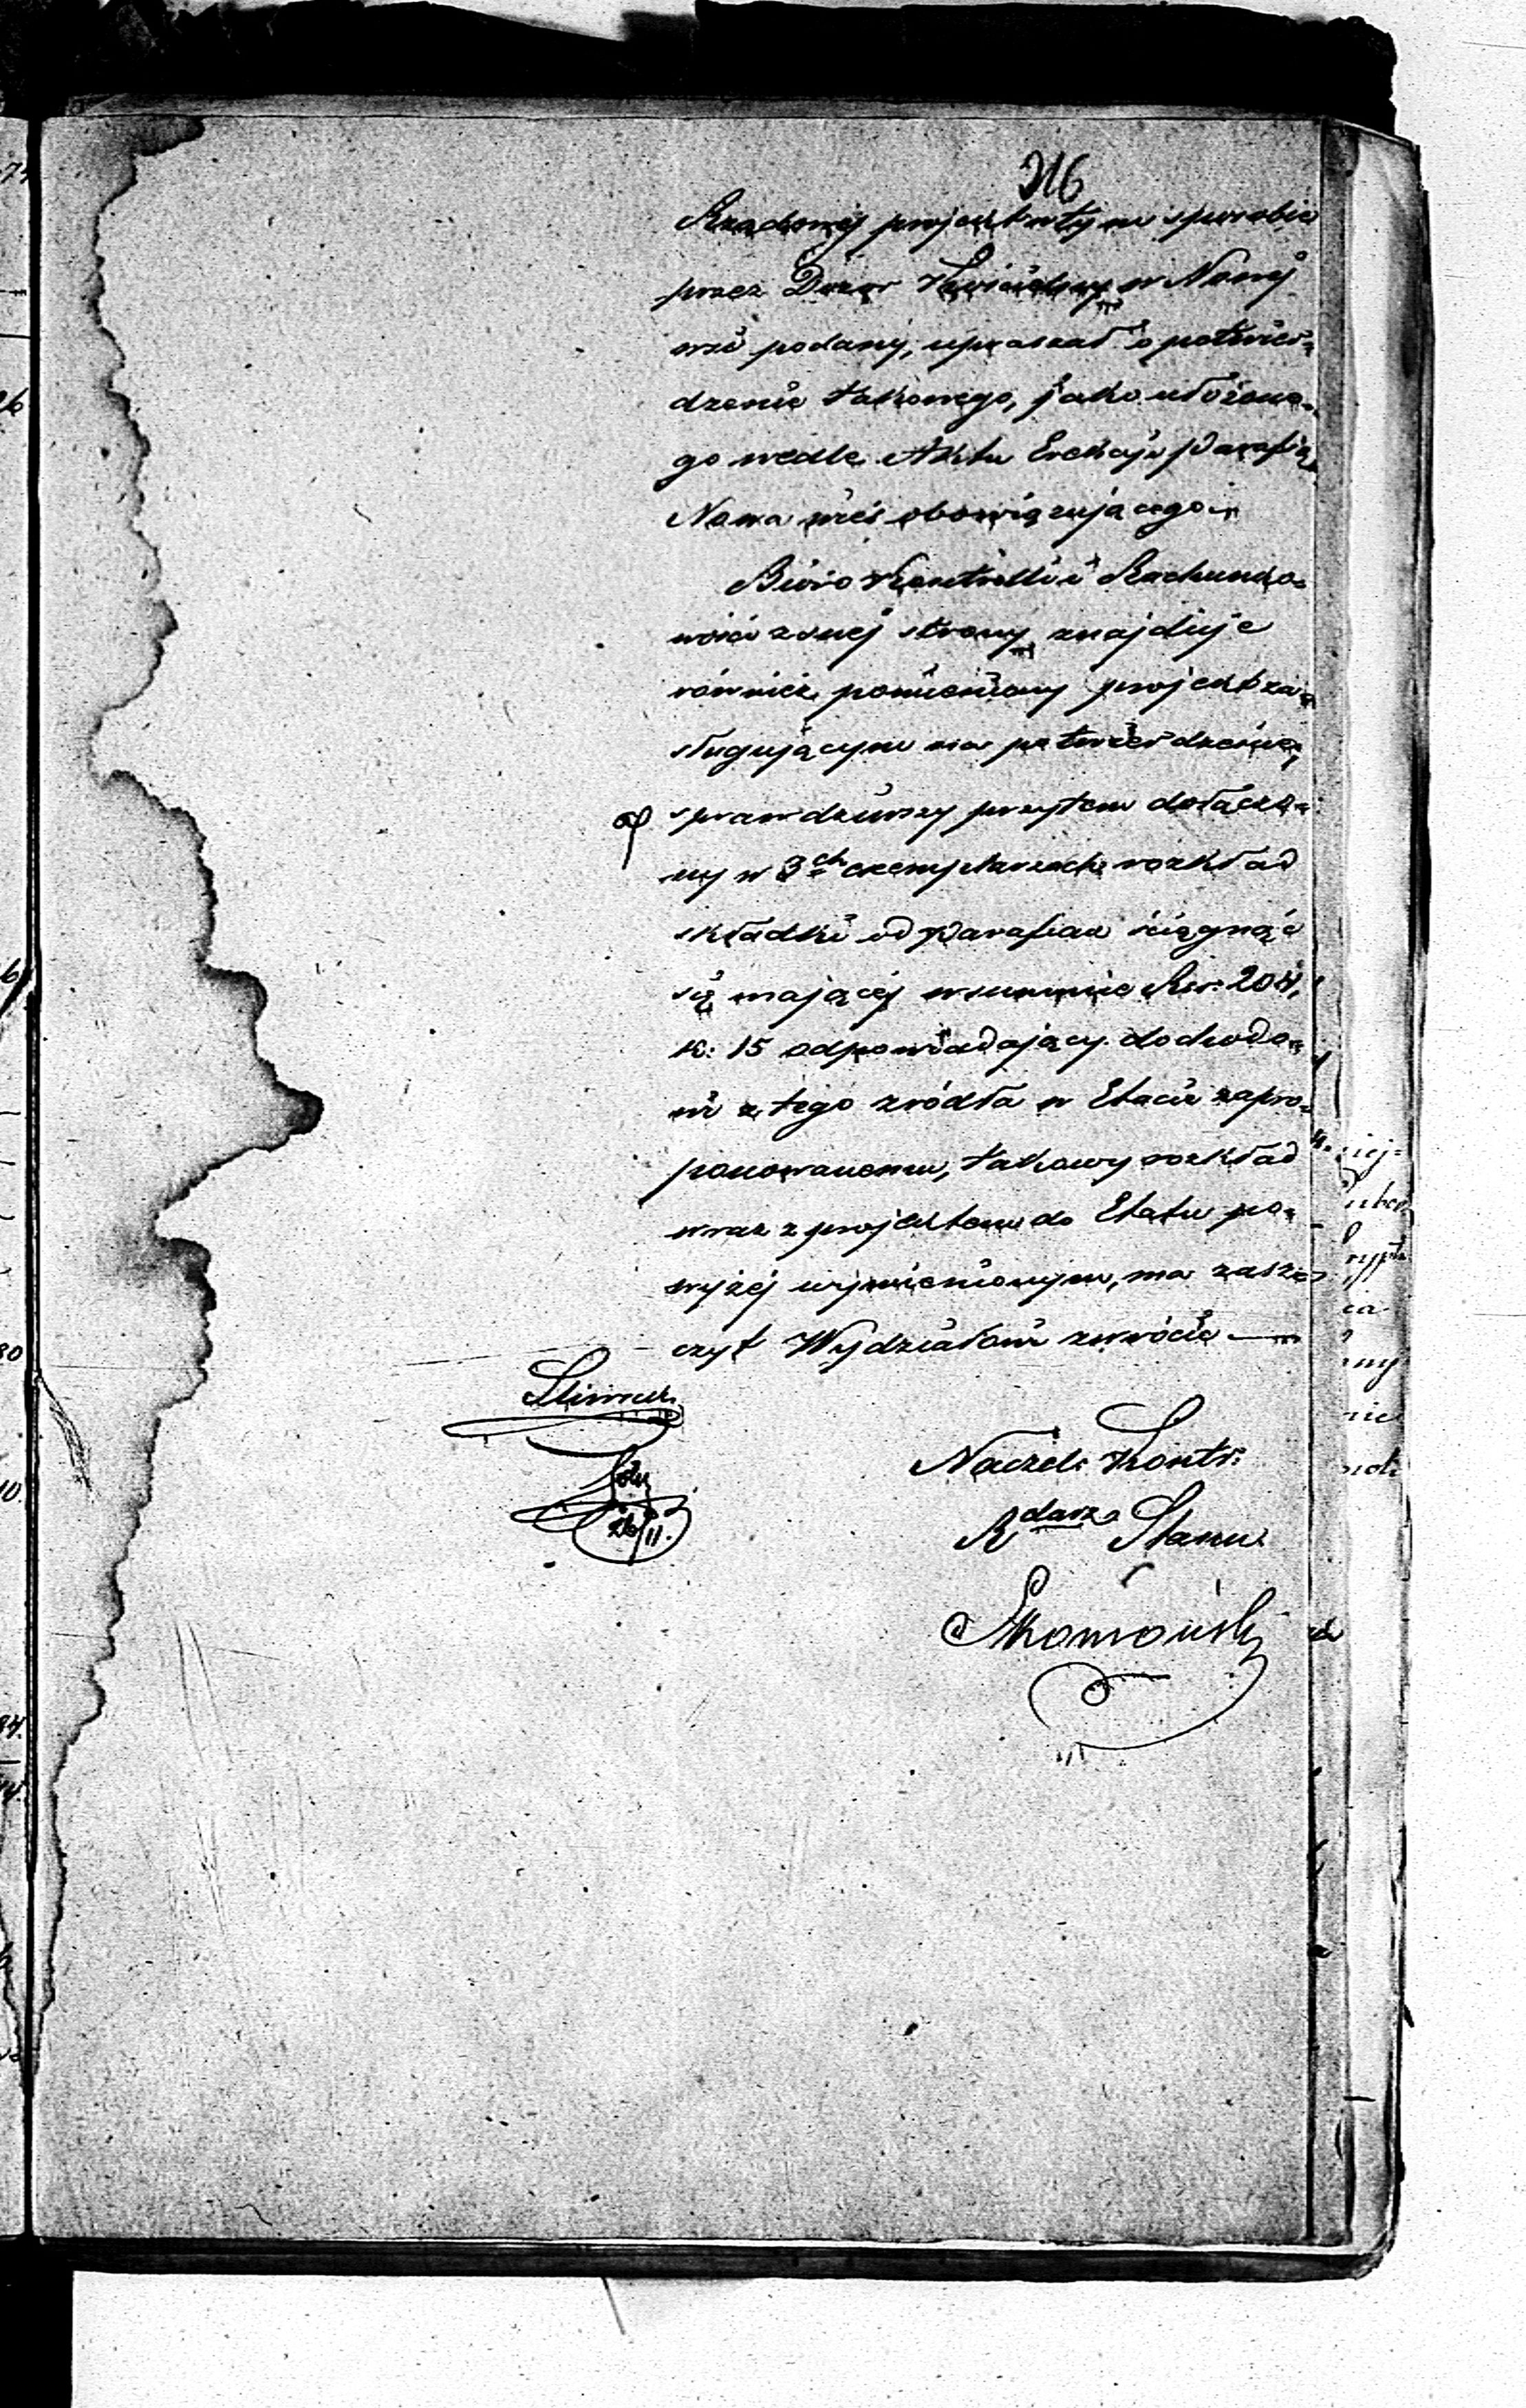 216
Rządowej projekt w tym sposobie
przez Dozór Kościelny w Nowej
wsi podany, upraszać o potwier=
dzenie takowego, jako ułożone=
go wedle Aktu Erekcji Parafią
Nowa wieś obowiązującego
Biuro Kontrolli i Rachunko=
wości z swej strony znajduje
również pomieniony projekt za=
sługującym na potwierdzenie,
sprawdziwszy przytem dołączo=
ny w 3ch exemplarzach rozkład
składki od Parafian ściągnąć
się mającej w summie Rsr. 204,
k: 15 odpowiadający dochodo=
wi z tego źródła w Etacie zapro=
ponowanemu, takowy rozkład
wraz z projektem do Etatu po=
wyżej wymienionym, ma zasz=
czyt Wydziałowi zwrócić
Naczel. Kontr:
Rdarz Stanu
26/11.